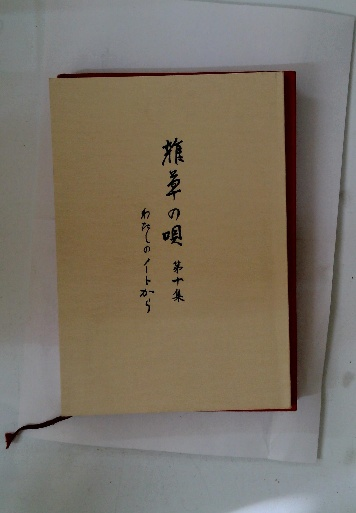 雑草の唄 第十集
わたしのノートから